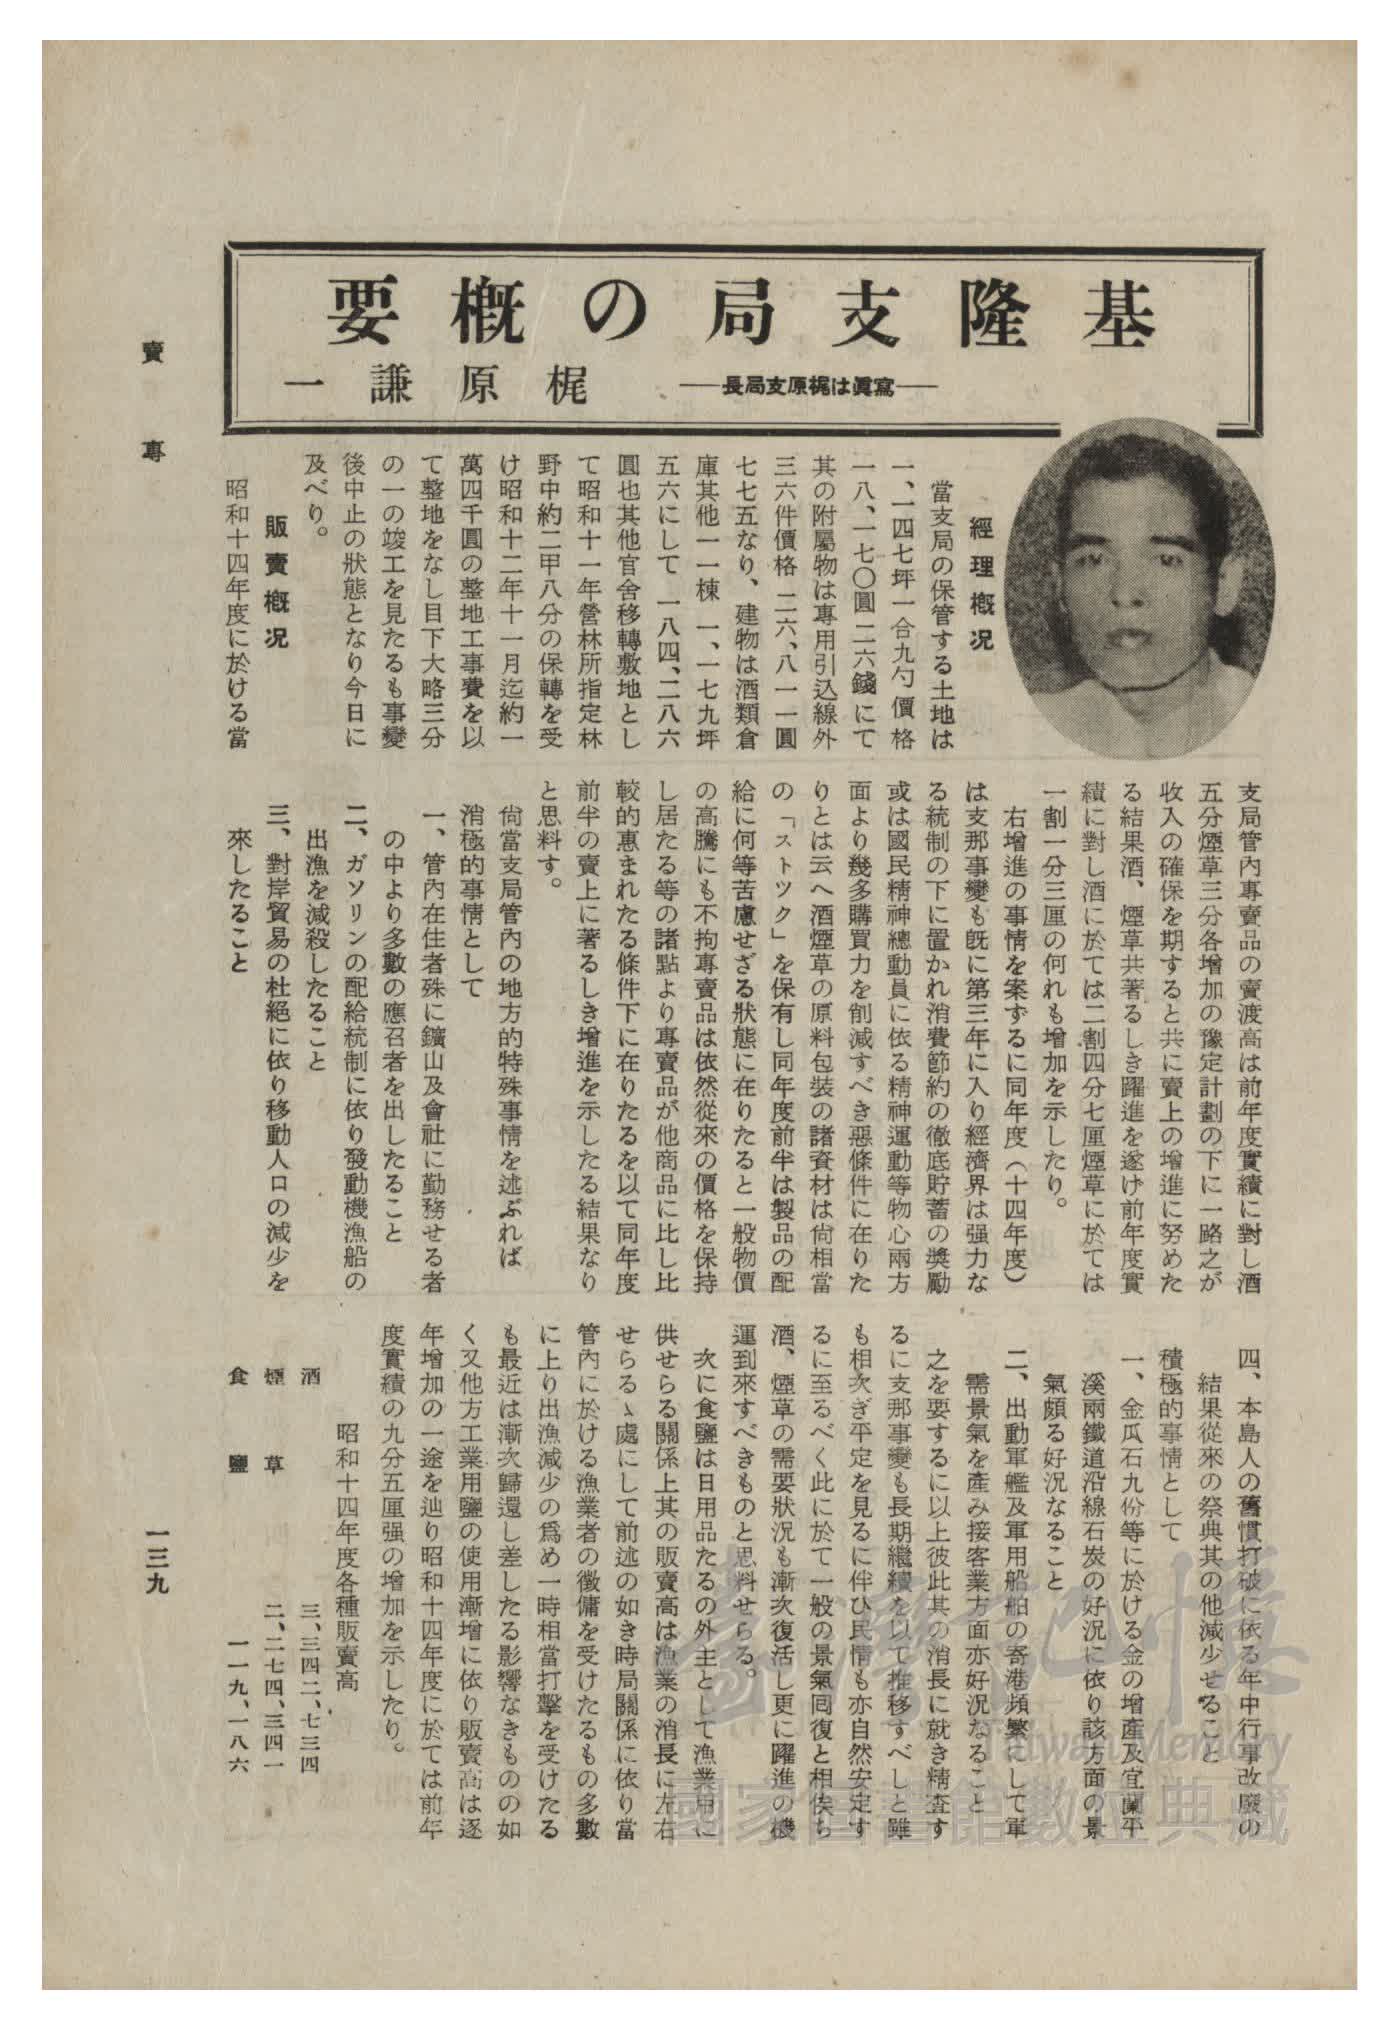 基隆支局の概要
――寫眞は梶原支局長――
梶原謙一
經理概況
當支局の保管する土地は
一、一四七坪一合九勺價格
一八、一七〇圓二六錢にて
其の附屬物は專用引込線外
三六件價格二六、八一一圓
七七五なり、建物は酒類倉
庫其他一一棟 一、一七九坪
五六にして 一八四、二八六
圓也其他官舍移轉敷地とし
て昭和十一年營林所指定林
野中約二甲八分の保轉を受
け昭和十二年十一月迄約一
萬四千圓の整地工事費を以
て整地をなし目下大略三分
の一の竣工を見たるも事變
後中止の狀態となり今日に
及べり。
販賣概況
昭和十四年度に於ける當
支局管內專賣品の賣渡高は前年度實績に對し酒
五分煙草三分各增加の豫定計劃の下に一路之が
收入の確保を期すると共に賣上の增進に努めた
る結果酒、煙草共著るしき躍進を遂げ前年度實
績に對し酒に於ては二割四分七厘煙草に於ては
一割一分三厘の何れも增加を示したり。
右增進の事情を案ずるに同年度（十四年度）
は支那事變も旣に第三年に入り經濟界は强力な
る統制の下に置かれ消費節約の徹底貯蓄の奬勵
或は國民精神總動員に依る精神運動等物心兩方
面より幾多購買力を削減すべき惡條件に在りた
りとは云へ酒煙草の原料包裝の諸資材は尙相當
の「ストツク」を保有し同年度前半は製品の配
給に何等苦慮せざる狀態に在りたると一般物價
の高騰にも不拘專賣品は依然從來の價格を保持
し居たる等の諸點より專賣品が他商品に比し比
較的惠まれたる條件下に在りたるを以て同年度
前半の賣上に著るしき增進を示したる結果なり
と思料す。
尙當支局管內の地方的特殊事情を述ぶれば
消極的事情として
一、管內在住者殊に鑛山及會社に勤務せる者
の中より多數の應召者を出したること
二、ガソリンの配給統制に依り發動機漁船の
出漁を減殺したること
三、對岸貿易の杜絕に依り移動人口の減少を
來したること
四、本島人の舊慣打破に依る年中行事改廢の
結果從來の祭典其の他減少せること
積極的事情として
一、金瓜石九份等に於ける金の增產及宜蘭平
溪兩鐵道沿線石炭の好況に依り該方面の景
氣頗る好況なること
二、出動軍艦及軍用船舶の寄港頻繁にして軍
需景氣を產み接客業方面亦好況なること
之を要するに以上彼此其の消長に就き精査す
るに支那事變も長期繼續を以て推移すべしと雖
も相次ぎ平定を見るに伴ひ民情も亦自然安定す
るに至るべく此に於て一般の景氣回復と相俟ち
酒、煙草の需要狀況も漸次復活し更に躍進の機
運到來すべきものと思料せらる。
次に食鹽は日用品たるの外主として漁業用に
供せらる關係上其の販賣高は漁業の消長に左右
せらるゝ處にして前述の如き時局關係に依り當
管內に於ける漁業者の徵傭を受けたるもの多數
に上り出漁減少の爲め一時相當打擊を受けたる
も最近は漸次歸還し差したる影響なきものの如
く又他方工業用鹽の使用漸增に依り販賣高は逐
年增加の一途を辿り昭和十四年度に於ては前年
度實績の九分五厘强の增加を示したり。
昭和十四年度各種販賣高
酒 三、三四二、七三四
煙草 二、二七四、三四一
食鹽 一一九、一八六
專賣
一三九
臺灣記憶
Taiwan Memory
國家圖書館數位典藏